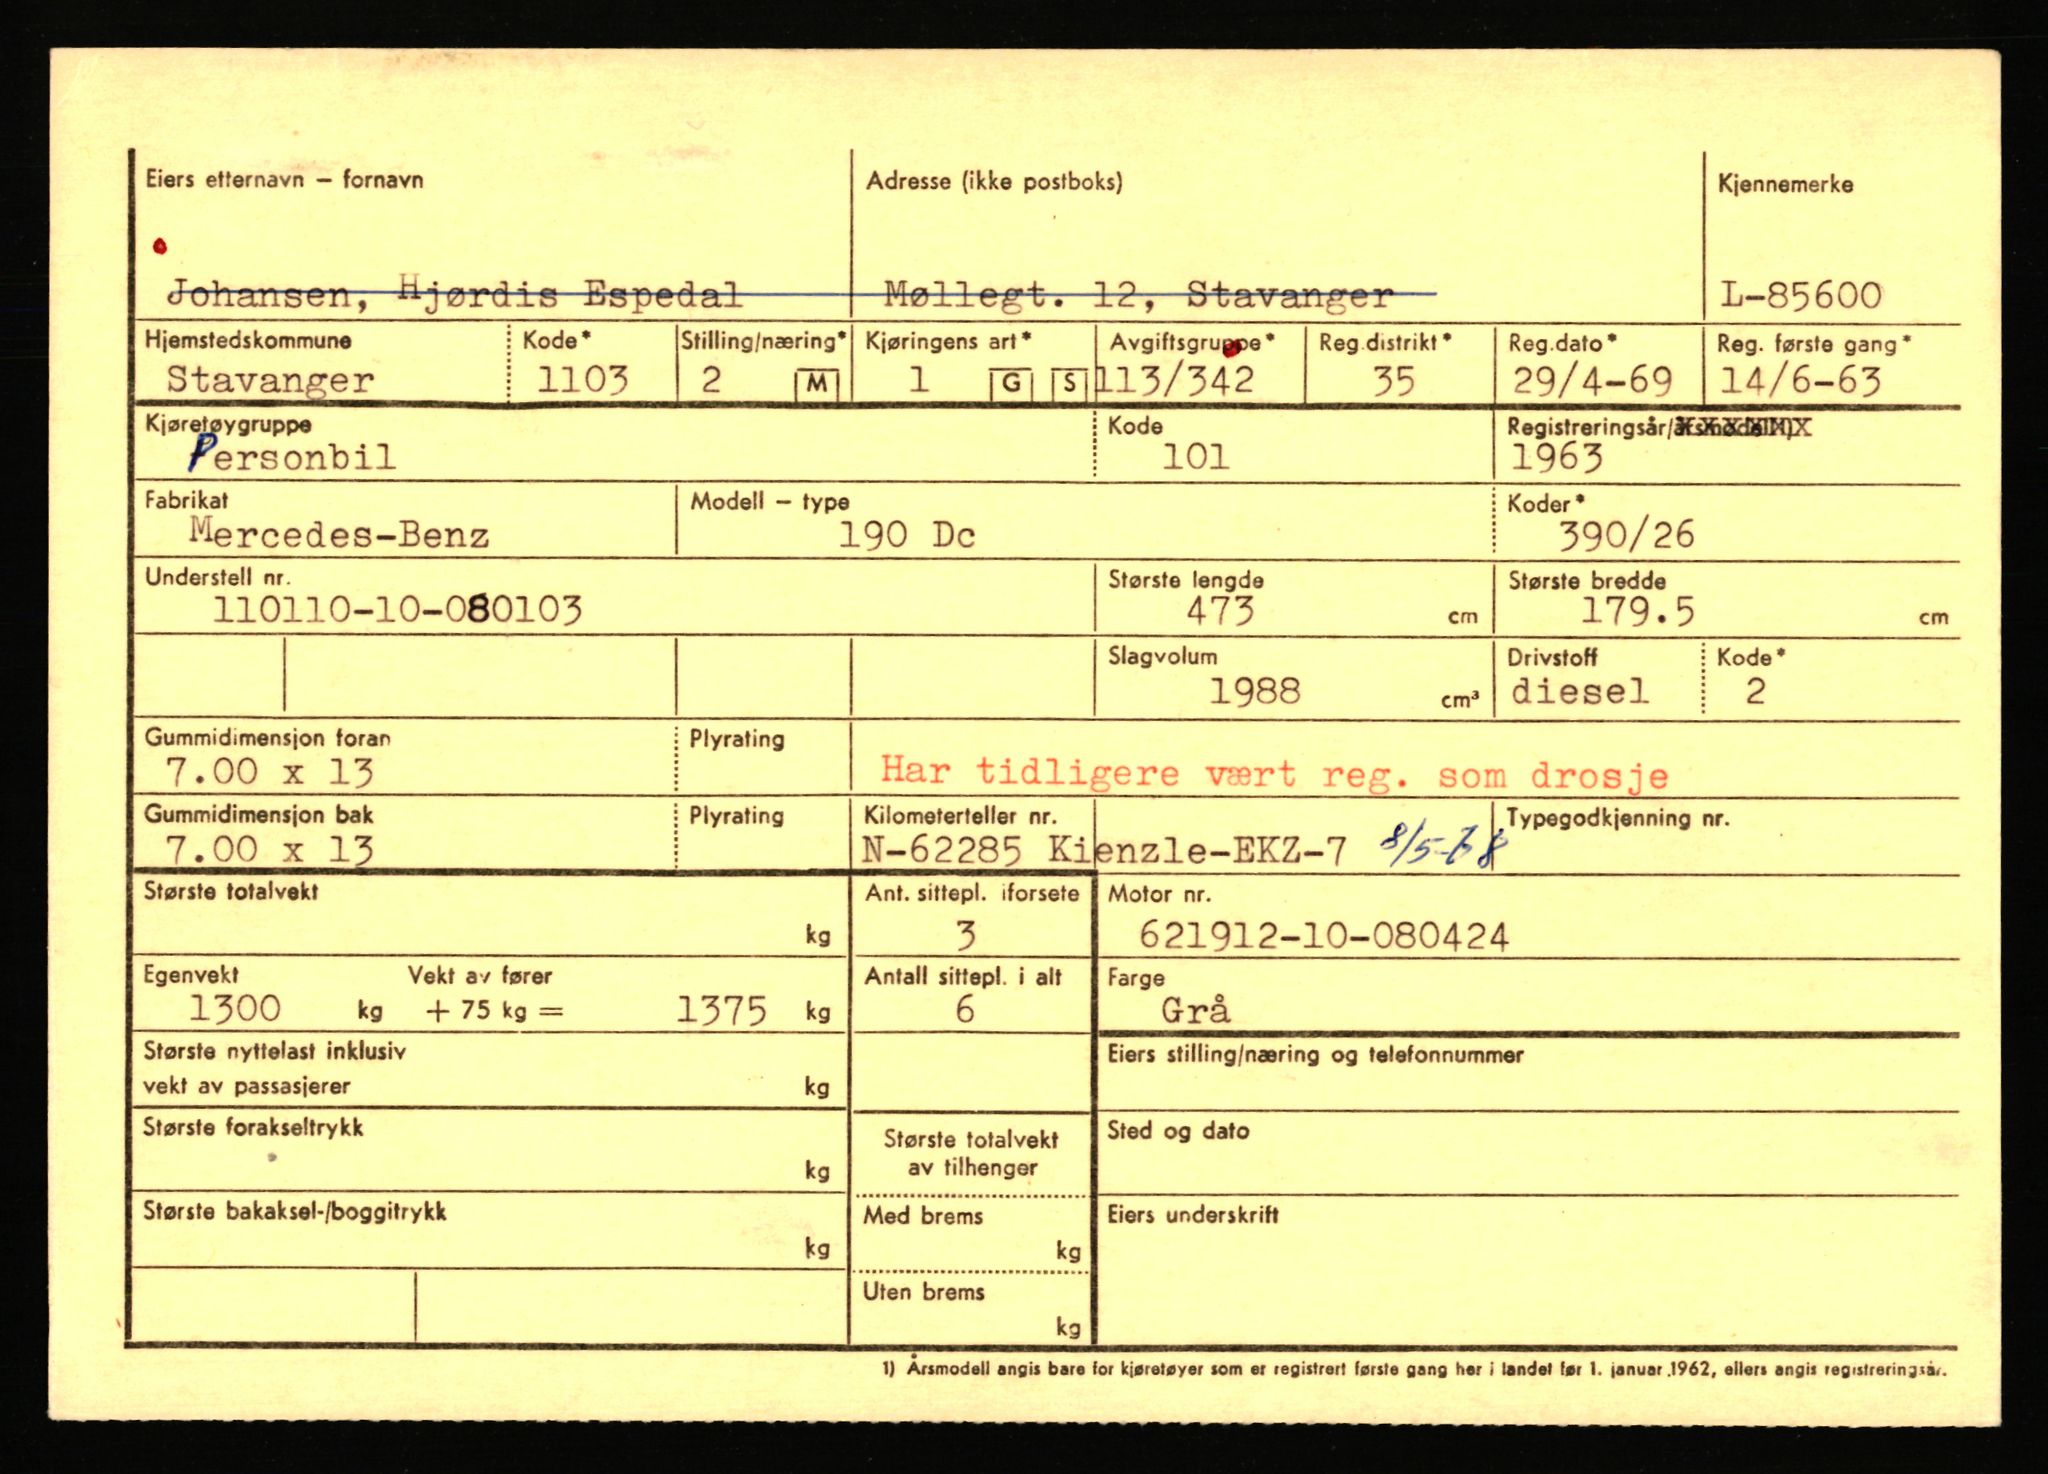 Eiers etternavn – fornavn Adresse (ikke postboks) Kjennemerke
Johansen, Hjørdis Espedal Møllegt. 12, Stavanger L-85600
Hjemstedskommune Kode* Stilling/næring* Kjøringens art* Avgiftsgruppe* Reg.distrikt* Reg.dato* Reg. første gang*
Stavanger 1103 2 M 1 G S 113/342 35 29/4-69 14/6-63
Kjøretøygruppe Kode Registreringsår/årsmodell 1)
Personbil 101 1963
Fabrikat Modell – type Koder*
Mercedes-Benz 190 Dc 390/26
Understell nr. Største lengde Største bredde
110110-10-080103 473 cm 179.5 cm
Slagvolum Drivstoff Kode*
1988 cm³ diesel 2
Gummidimensjon foran Plyrating
7.00 x 13 Har tidligere vært reg. som drosje
Gummidimensjon bak Plyrating Kilometerteller nr. Typegodkjenning nr.
7.00 x 13 N-62285 Kienzle-EKZ-7 8/5-68
Største totalvekt Ant. sittepl. iforsete Motor nr.
kg 3 621912-10-080424
Egenvekt Vekt av fører Antall sittepl. i alt Farge
1300 kg + 75 kg = 1375 kg 6 Grå
Største nyttelast inklusiv Eiers stilling/næring og telefonnummer
vekt av passasjerer kg
Største forakseltrykk Største totalvekt Sted og dato
kg av tilhenger
Største bakaksel-/boggitrykk Med brems Eiers underskrift
kg kg
Uten brems
kg
1) Årsmodell angis bare for kjøretøyer som er registrert første gang her i landet før 1. januar 1962, ellers angis registreringsår.